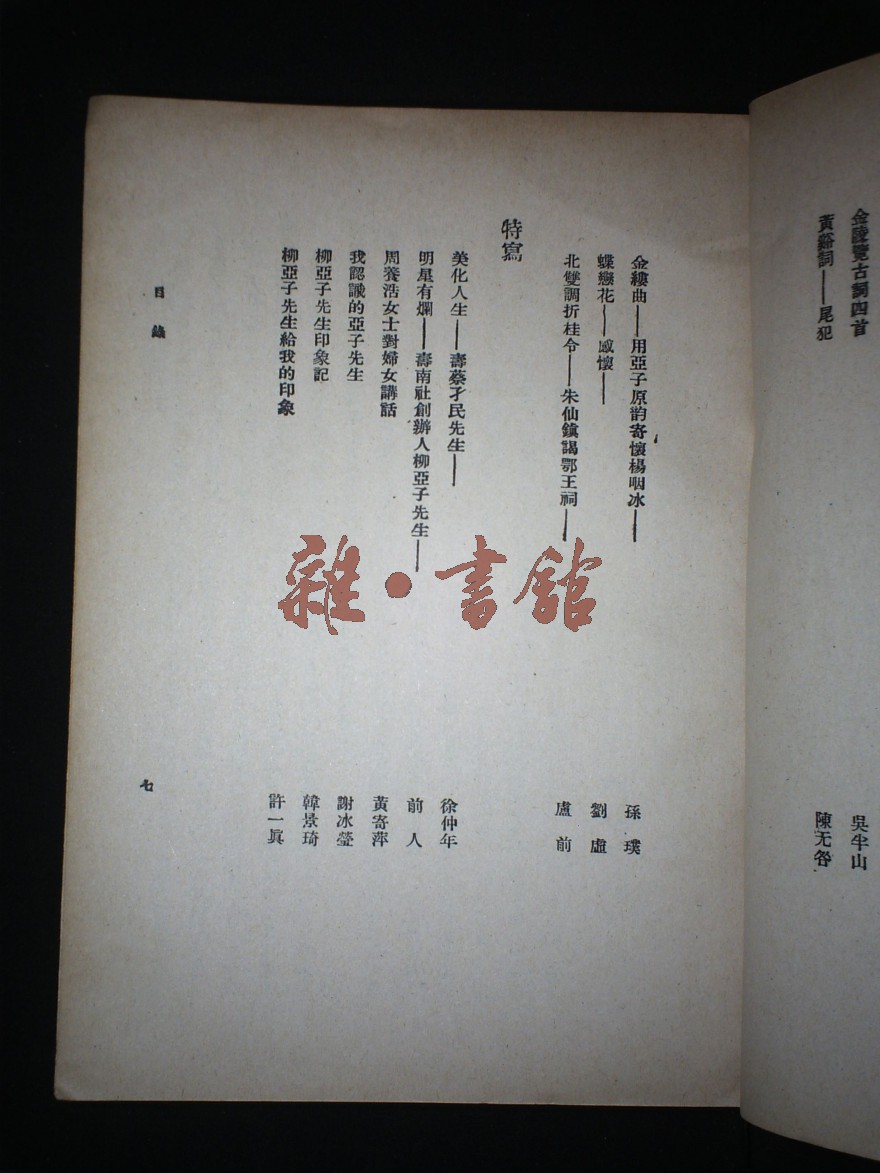 金陵覽古詞四首 吳半山
黃谿詞——尾犯 陳无咎
金縷曲——用亞子原韵寄懷楊咽冰—— 孫璞
蝶戀花——感懷—— 劉虛
北雙調折桂令——朱仙鎮謁鄂王祠—— 盧前
特寫
美化人生——壽蔡孑民先生—— 徐仲年
明星有爛——壽南社創辦人柳亞子先生—— 前人
周養浩女士對婦女講話 黃寄萍
我認識的亞子先生 謝冰瑩
柳亞子先生印象記 韓景琦
柳亞子先生給我的印象 許一眞
目錄
七
雜·書館